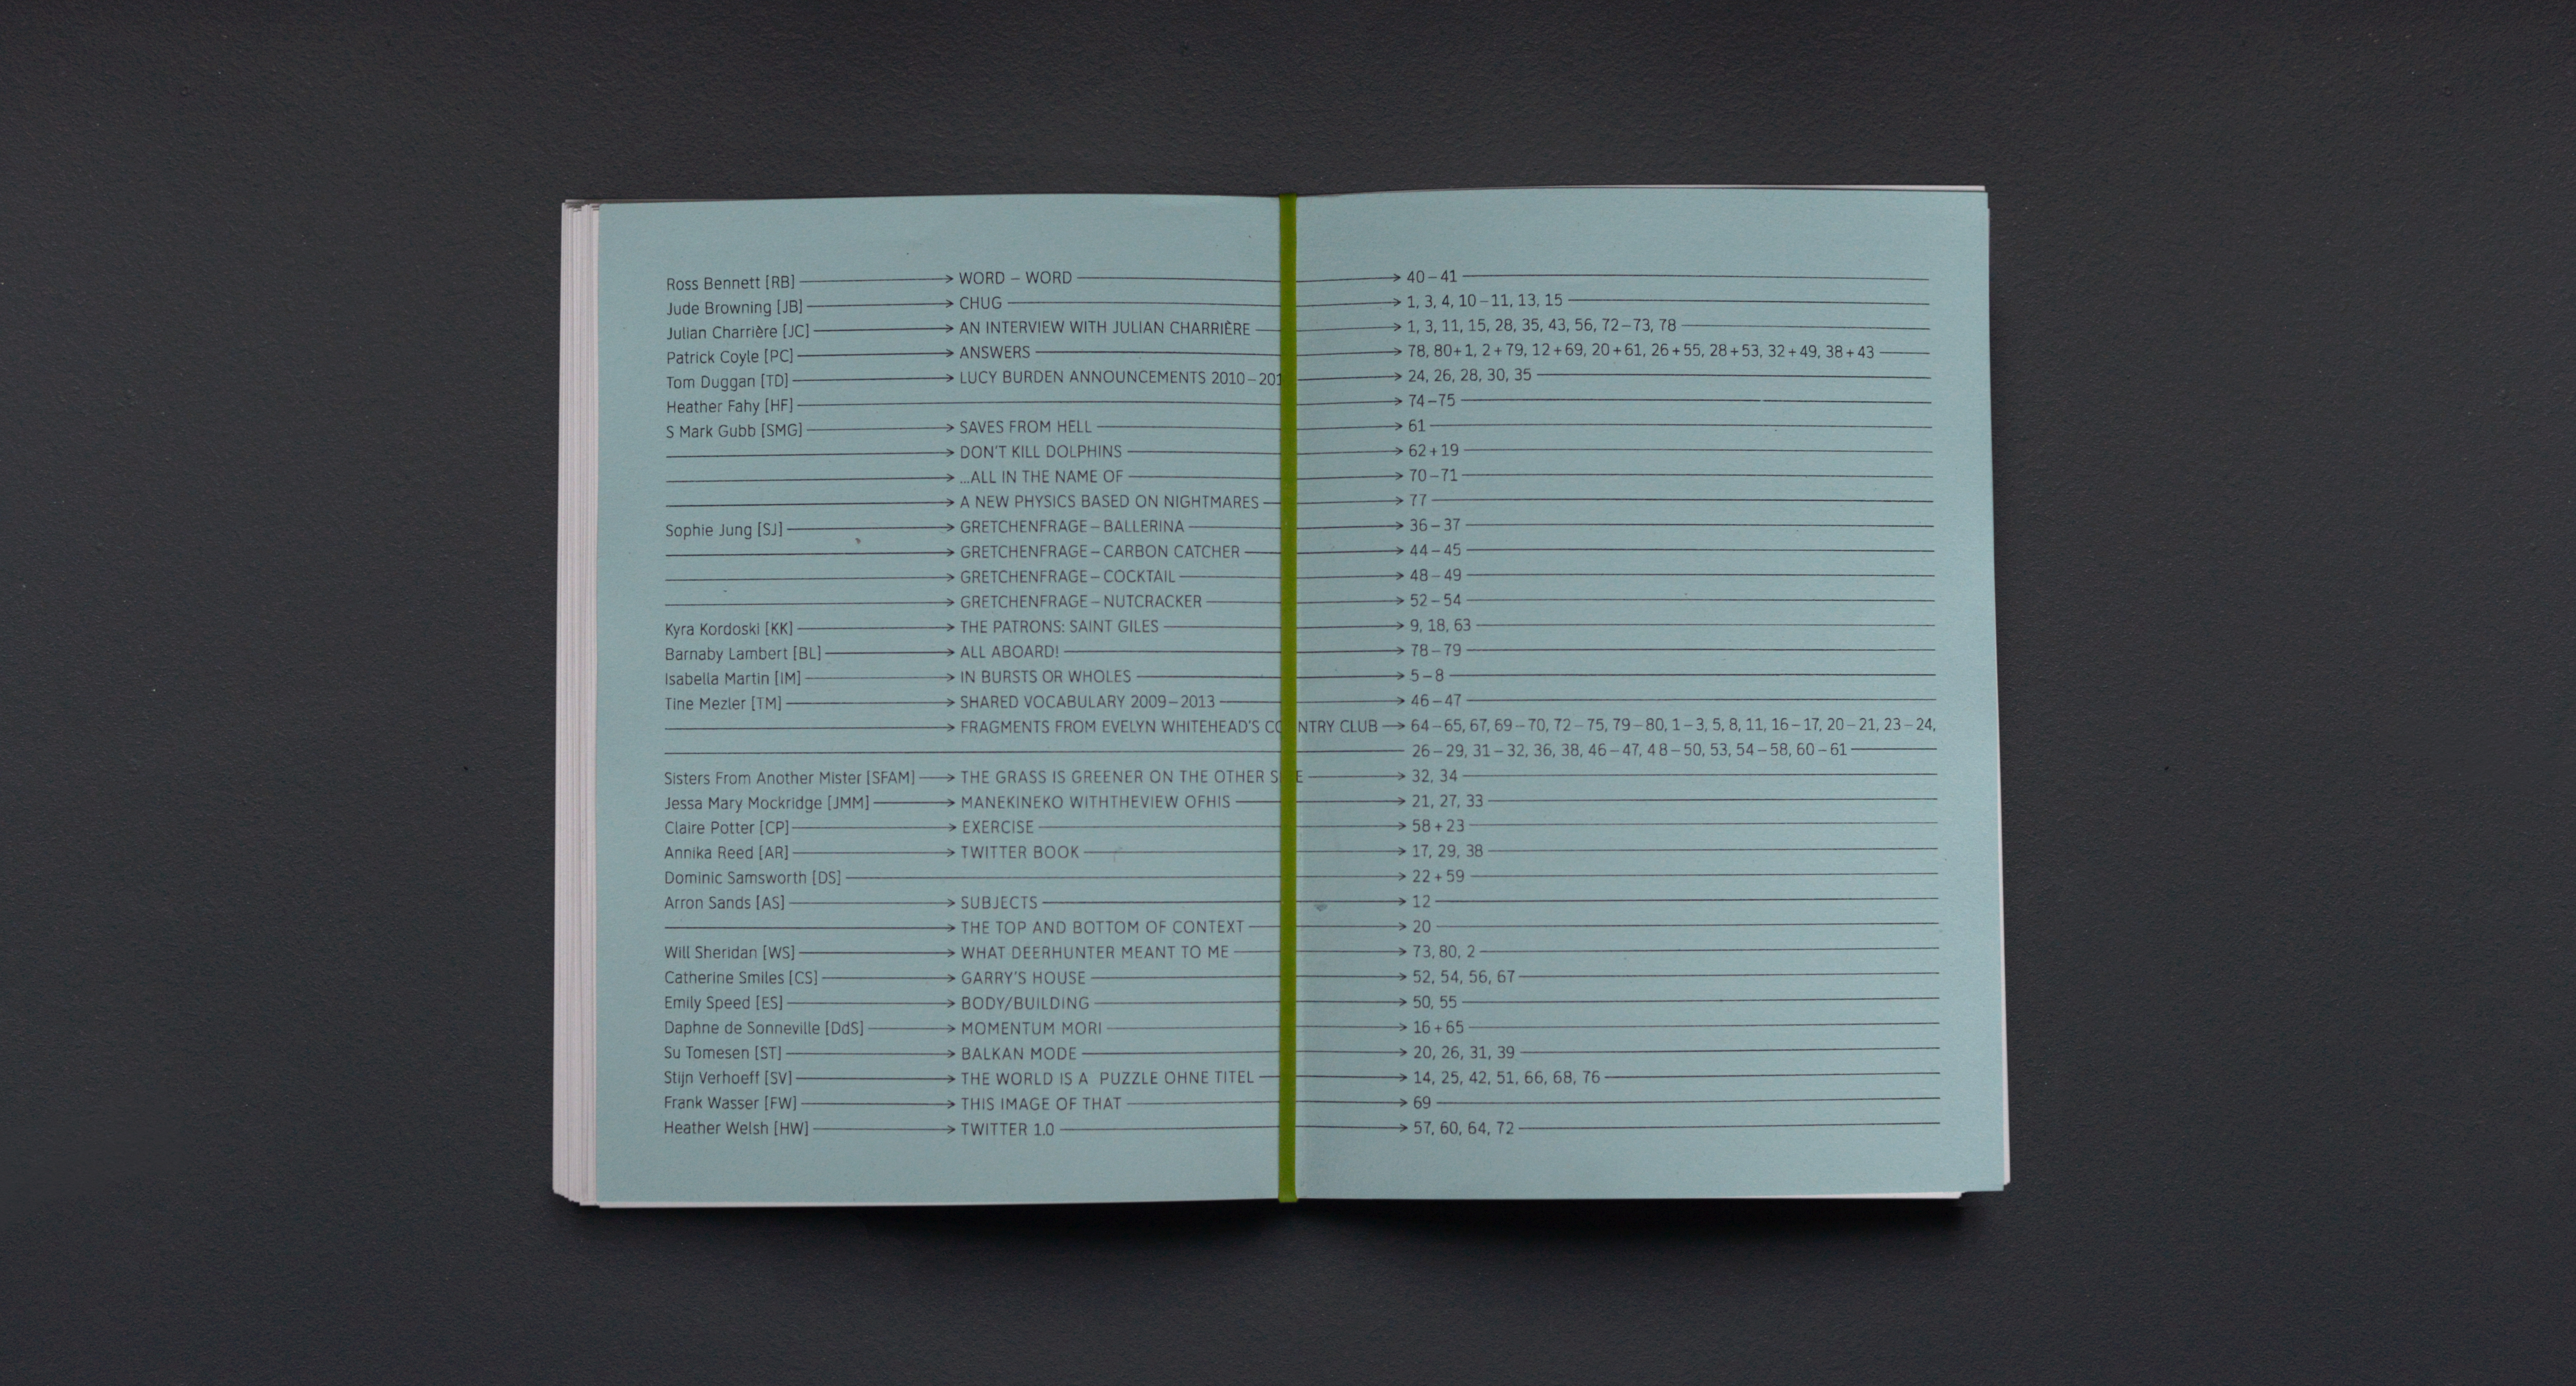 Ross Bennett [RB] → WORD – WORD → 40–41
Jude Browning [JB] → CHUG → 1, 3, 4, 10–11, 13, 15
Julian Charrière [JC] → AN INTERVIEW WITH JULIAN CHARRIÈRE → 1, 3, 11, 15, 28, 35, 43, 56, 72–73, 78
Patrick Coyle [PC] → ANSWERS → 78, 80+1, 2+79, 12+69, 20+61, 26+55, 28+53, 32+49, 38+43
Tom Duggan [TD] → LUCY BURDEN ANNOUNCEMENTS 2010–201 → 24, 26, 28, 30, 35
Heather Fahy [HF] → 74–75
S Mark Gubb [SMG] → SAVES FROM HELL → 61
→ DON'T KILL DOLPHINS → 62+19
→ ...ALL IN THE NAME OF → 70–71
→ A NEW PHYSICS BASED ON NIGHTMARES → 77
Sophie Jung [SJ] → GRETCHENFRAGE – BALLERINA → 36–37
→ GRETCHENFRAGE – CARBON CATCHER → 44–45
→ GRETCHENFRAGE – COCKTAIL → 48–49
→ GRETCHENFRAGE – NUTCRACKER → 52–54
Kyra Kordoski [KK] → THE PATRONS: SAINT GILES → 9, 18, 63
Barnaby Lambert [BL] → ALL ABOARD! → 78–79
Isabella Martin [IM] → IN BURSTS OR WHOLES → 5–8
Tine Mezler [TM] → SHARED VOCABULARY 2009–2013 → 46–47
→ FRAGMENTS FROM EVELYN WHITEHEAD'S CO NTRY CLUB → 64–65, 67, 69–70, 72–75, 79–80, 1–3, 5, 8, 11, 16–17, 20–21, 23–24,
26–29, 31–32, 36, 38, 46–47, 48–50, 53, 54–58, 60–61
Sisters From Another Mister [SFAM] → THE GRASS IS GREENER ON THE OTHER S E → 32, 34
Jessa Mary Mockridge [JMM] → MANEKINEKO WITHTHEVIEW OFHIS → 21, 27, 33
Claire Potter [CP] → EXERCISE → 58+23
Annika Reed [AR] → TWITTER BOOK → 17, 29, 38
Dominic Samsworth [DS] → 22+59
Arron Sands [AS] → SUBJECTS → 12
→ THE TOP AND BOTTOM OF CONTEXT → 20
Will Sheridan [WS] → WHAT DEERHUNTER MEANT TO ME → 73, 80, 2
Catherine Smiles [CS] → GARRY'S HOUSE → 52, 54, 56, 67
Emily Speed [ES] → BODY/BUILDING → 50, 55
Daphne de Sonneville [DdS] → MOMENTUM MORI → 16+65
Su Tomesen [ST] → BALKAN MODE → 20, 26, 31, 39
Stijn Verhoeff [SV] → THE WORLD IS A PUZZLE OHNE TITEL → 14, 25, 42, 51, 66, 68, 76
Frank Wasser [FW] → THIS IMAGE OF THAT → 69
Heather Welsh [HW] → TWITTER 1.0 → 57, 60, 64, 72